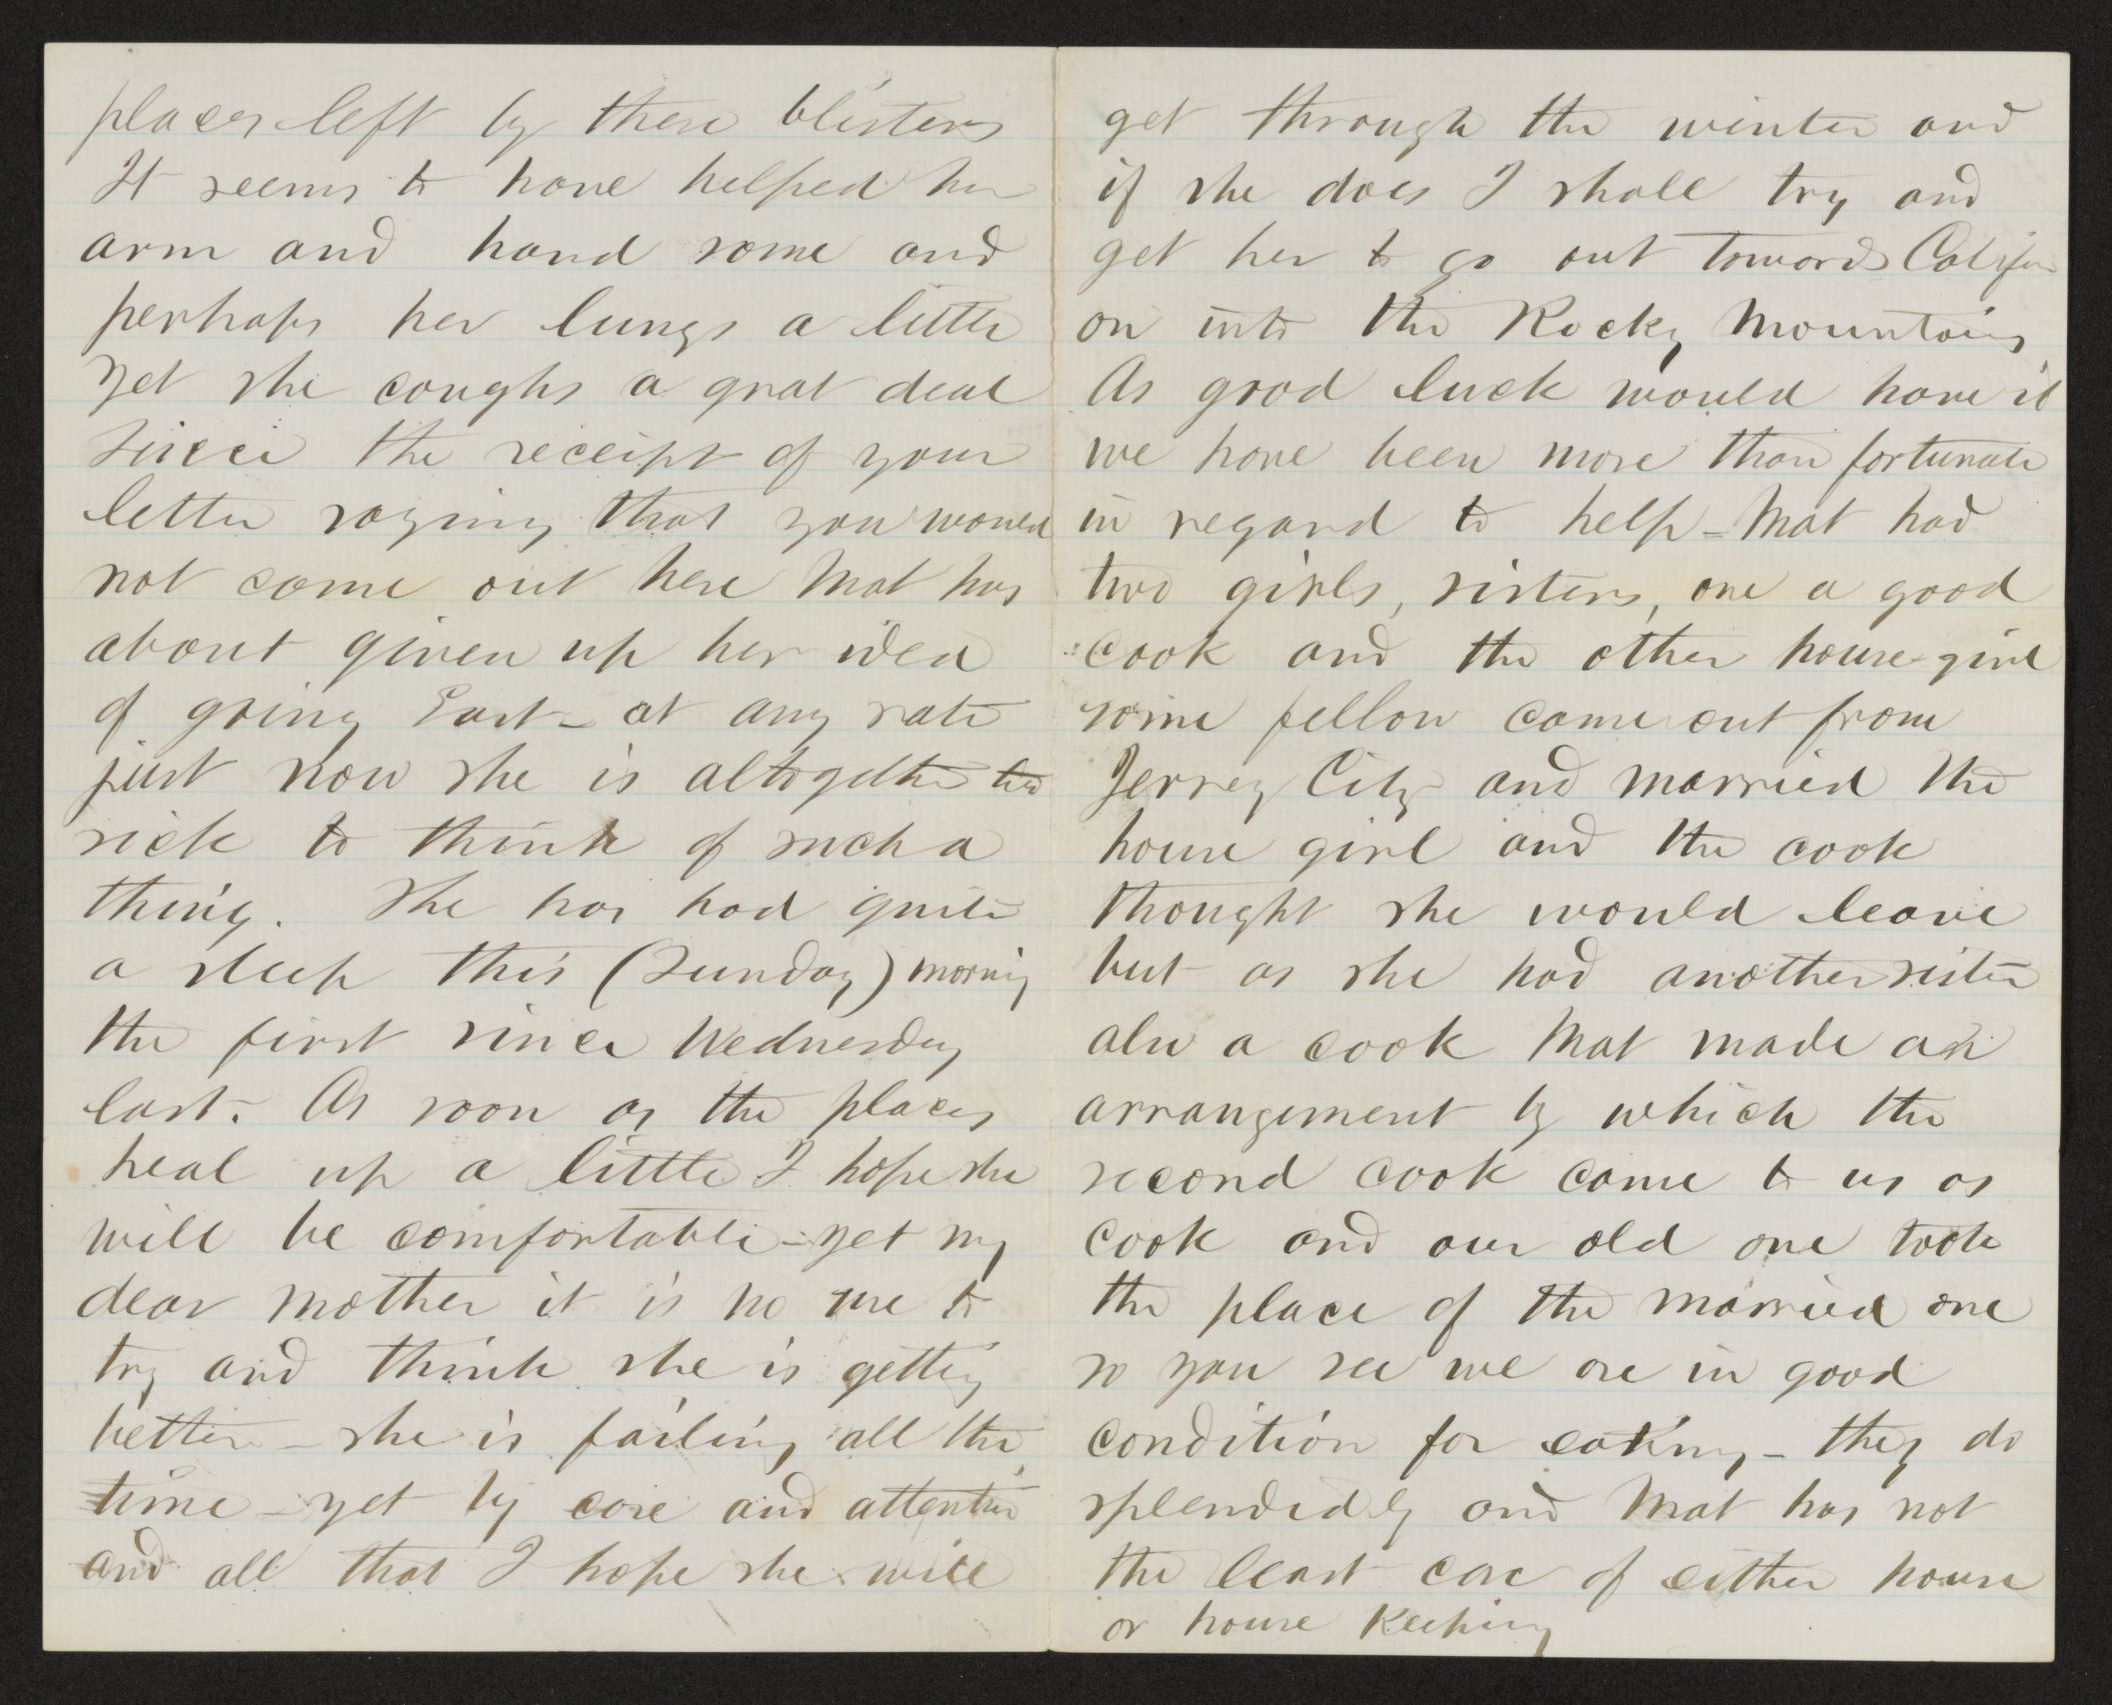 places left by these blisters
It seems to have helped her
arm and hand some and
perhaps her lungs a little
yet she coughs a great deal
Since the receipt of your
letter saying that you would
not come out here Mat has
about given up her idea
of going East – at any rate
just now she is altogether too
sick to think of such a
thing. She has had quite
a sleep this (Sunday) morning
the first since Wednesday
last. As soon as the places
heal up a little I hope she
will be comfortable – yet my
dear mother it is no use to
try and think she is getting
better – she is failing all the
time – yet by care and attention
and all that I hope she will
get through the winter and
if she does I shall try and
get her to go out towards Califor
on into the Rocky Mountains
As good luck would have it
we have been more than fortunate
in regard to help – Mat had
two girls, sisters, one a good
cook and the other house-girl
some fellow came out from
Jersey City and married the
house girl and the cook
thought she would leave
but as she had another sister
also a cook Mat made an
arrangement by which the
second cook came to us as
cook and our old one took
the place of the married one
so you see we are in good
condition for eating – they do
splendidly and Mat has not
the least care of either house
or house keeping